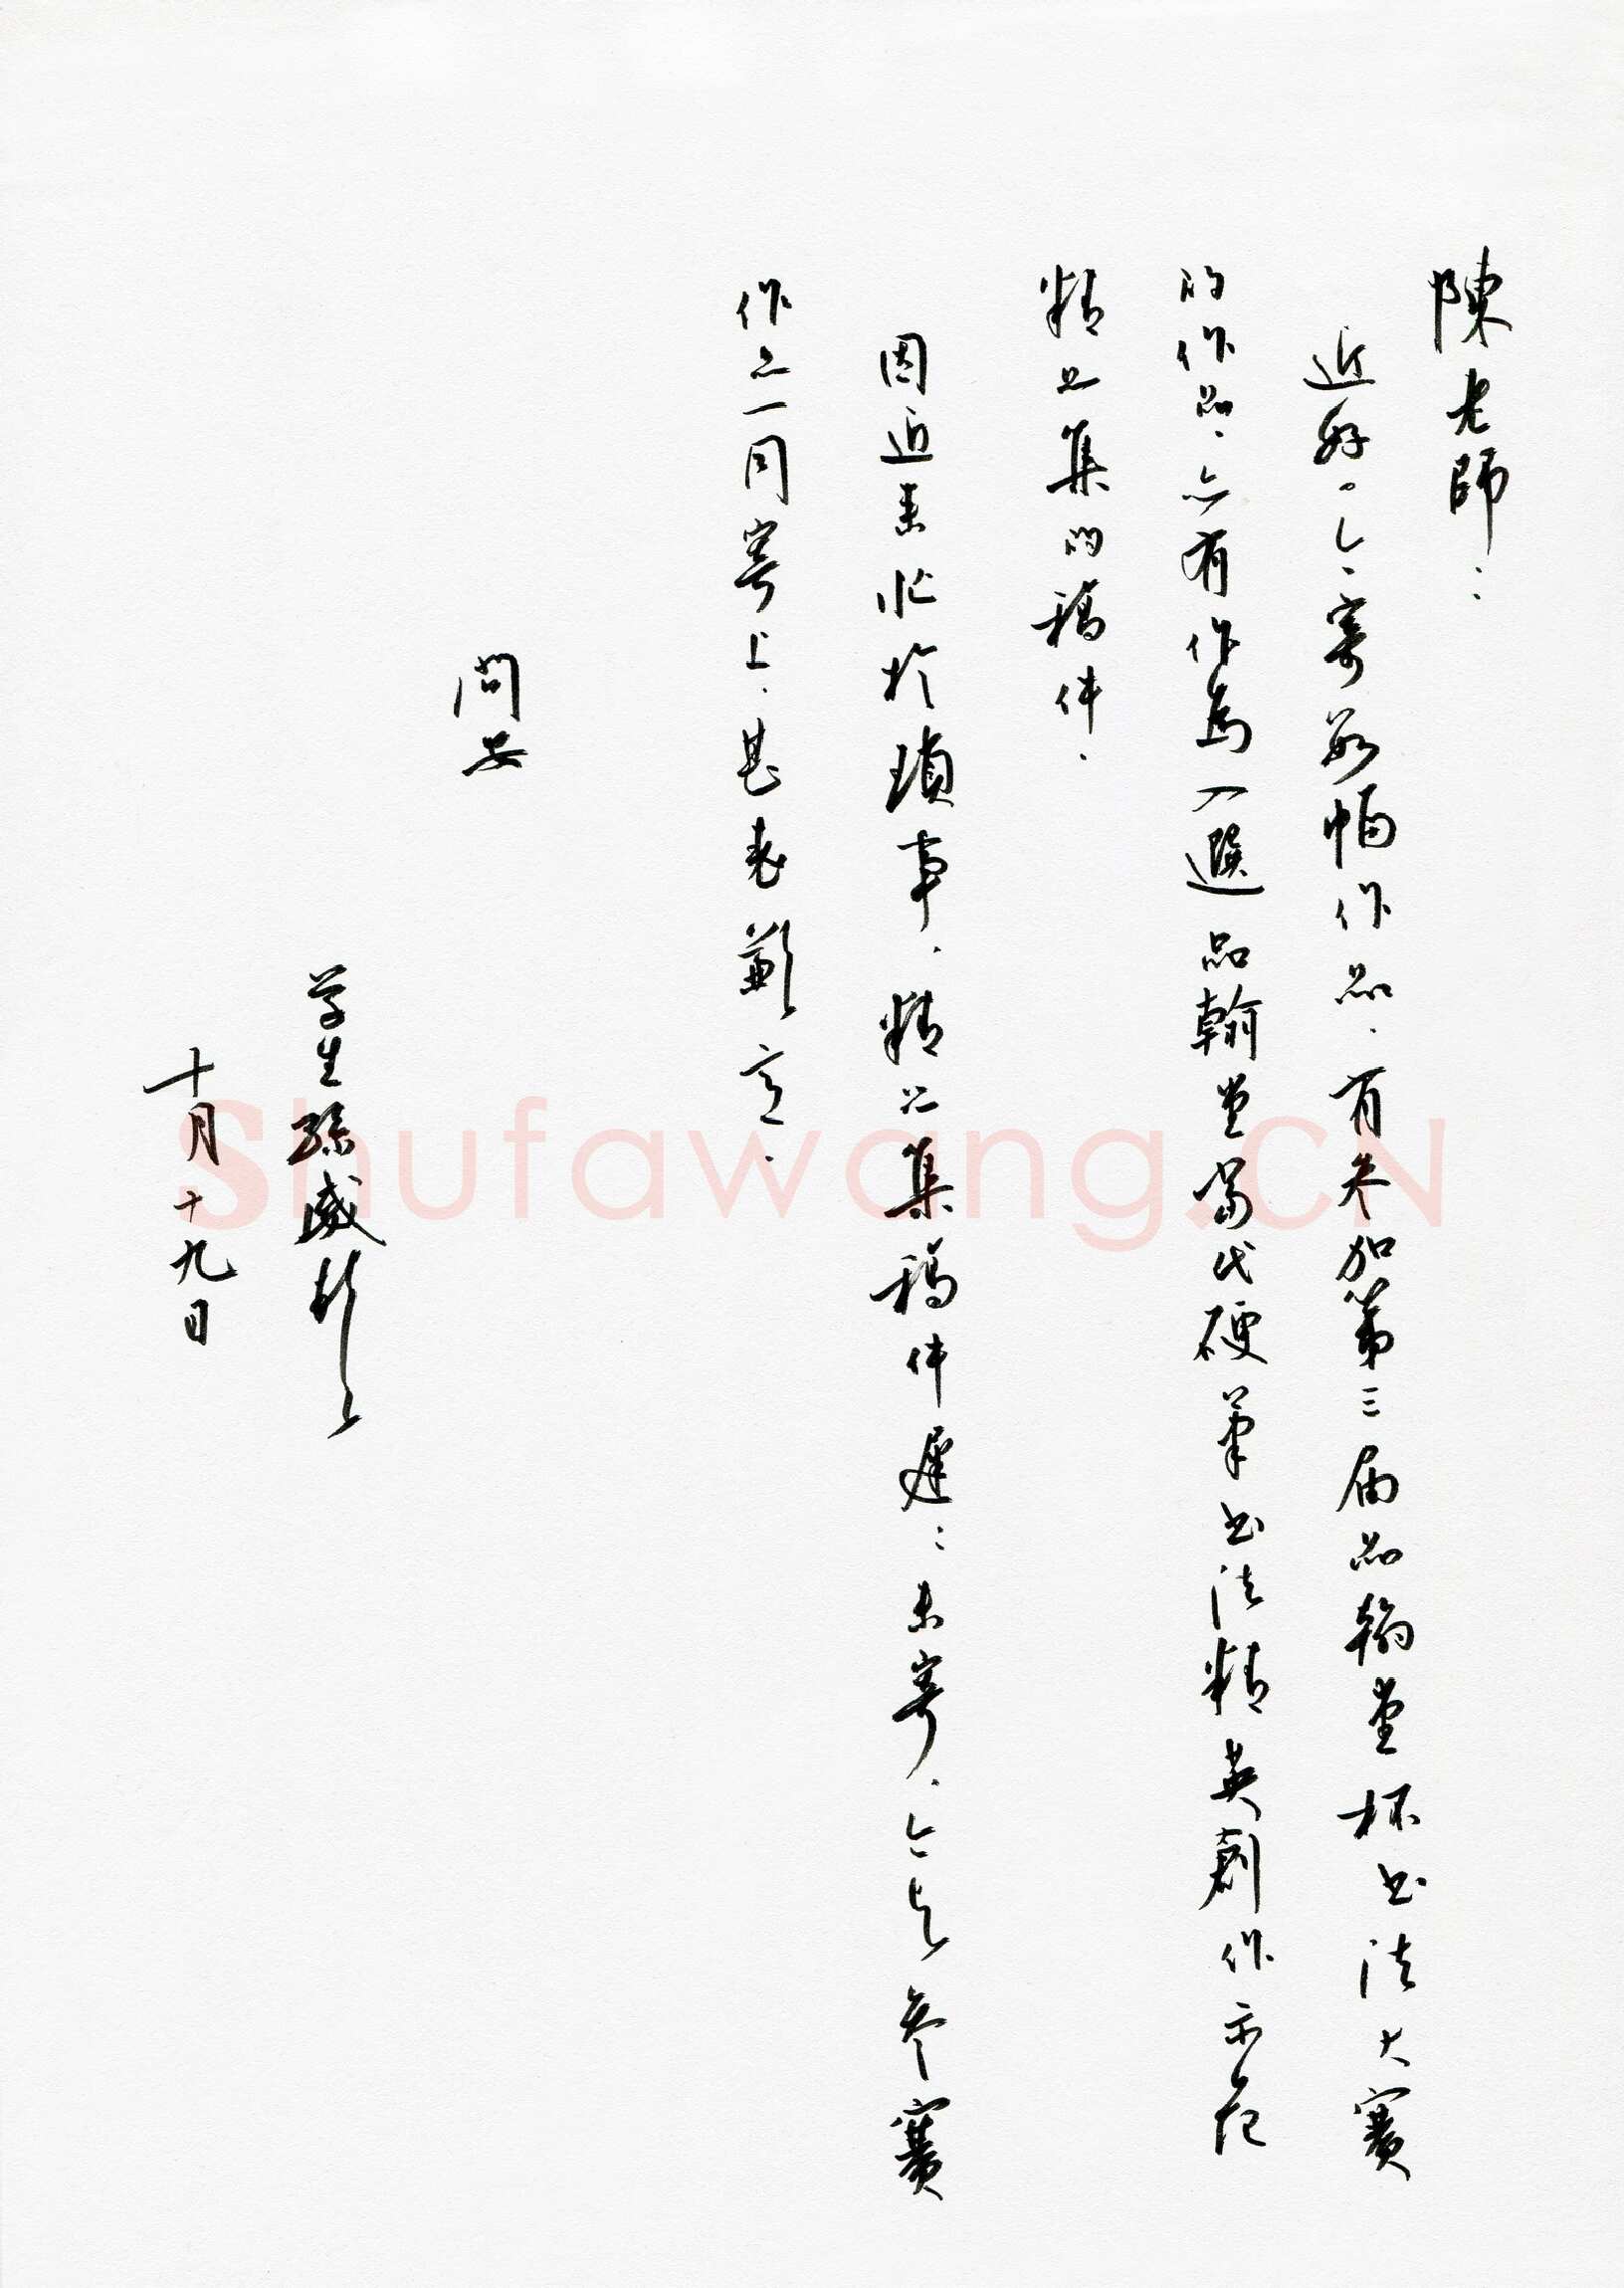 陳老師：
近好。今寄数幅作品，有参加第三届品翰堂杯书法大賽
的作品，亦有作為入選品翰堂當代硬筆书法精英創作示范
精品集的稿件。
因近来忙於瑣事，精品集稿件遲遲未寄，今與参賽
作品一同寄上，甚表歉意。
問安
学生孫威
十月十九日
Shufawang.CN